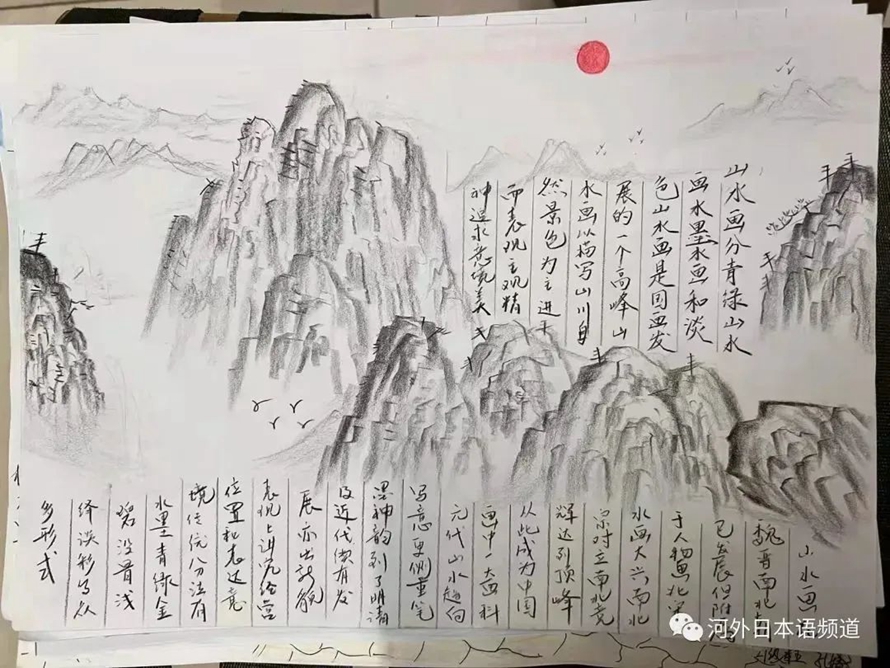 山水画分青绿山水
画水墨水画和淡
色山水画是国画发
展的一个高峰山
水画以描写山川自
然景色为主进
而表现主观精
神追求意境美
山水画
魏晋南北
已发展但附
于人物画北宋
水画大兴南北
宋对立南北竞
辉达到顶峰
从此成为中国
画中一大画科
元代山水趋向
写意更侧重笔
墨神韵到了明清
及近代续有发
展亦出新貌
表现上讲究经营
位置和表达意
境传统分法有
水墨青绿金
碧没骨浅
绛淡彩等众
多形式
河外日本语频道